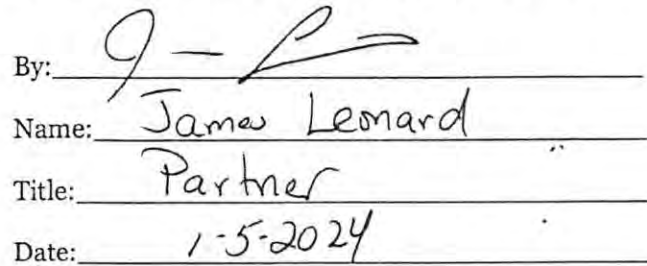 By:
Name: James Leonard
Title: Partner
Date: 1-5-2024